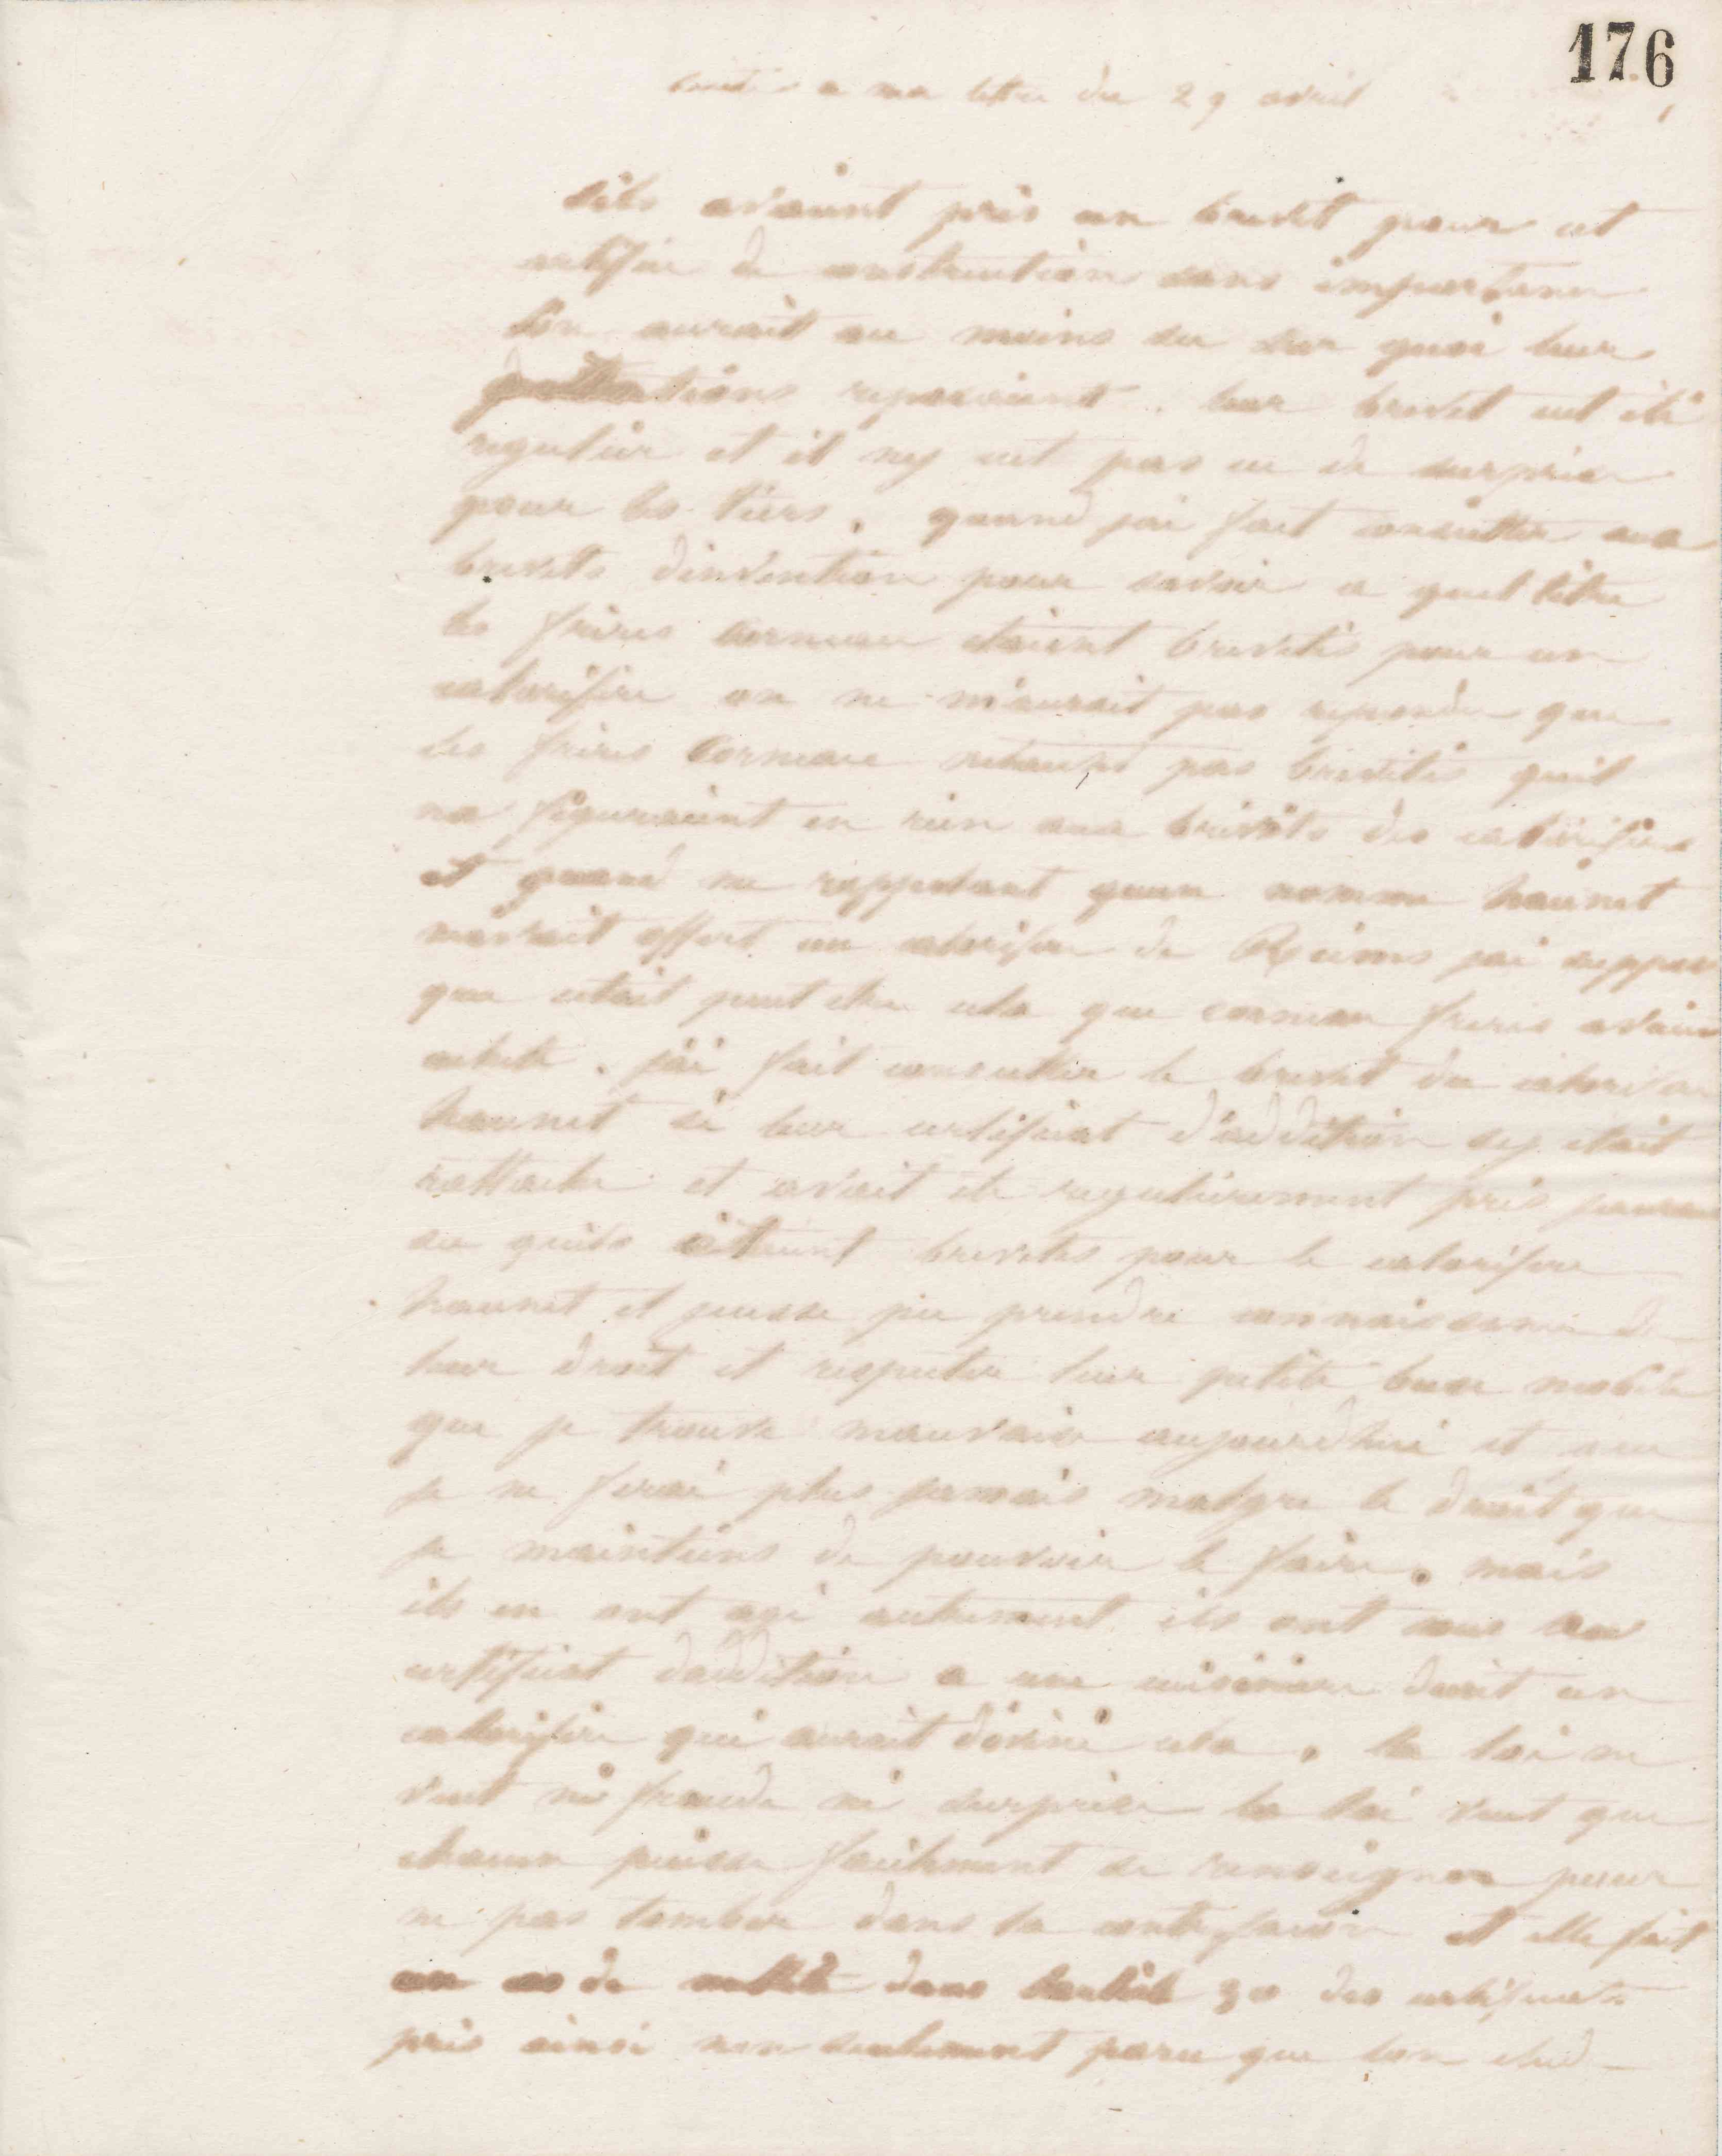 176
a ma lettre du 29 avril
sils avaient pris un brevet pour cet
artifice de construction sans importance
lon aurait au moins su sur quoi leurs
reposaient . leur brevet eut été
regulier et il ny eut pas eu de surprise
pour les tiers . quand jai fait consulter aux
brevets dinvention pour savoir a quel titre
les frères corneau etaient brevetés pour un
calorifère on ne m'aurait pas repondu que
les frères Corneau netaient pas brevetés quil
ne figuraient en rien aux brevets des calorifères
et quand me rappelant quun nomme haunet
mavait offert un calorifère de Reims jai suppose
que cetait peut etre cela que corneau freres avaient
acheté . jai fait consulter le brevet du calorifère
haunet si leur certificat d'addition sy etait
rattaché et avait ete regulierement pris
su quils étaient brevetés pour le calorifere
haunet et jeusse pu prendre connaissance de
leur droit et respecter leur petite buse mobile
que je trouve mauvaise aujourdhui et que
je ne ferai plus jamais malgre le droit que
je maintiens de pouvoir le faire . mais
ils en ont agi autrement ils ont mis leur
certificat daddition a une cuisinière dont un
calorifère qui aurait déviné cela . la loi ne
veut ni fraude ni surprise la loi veut que
chacun puisse facilement se renseigner pour
ne pas tomber dans la contrefacon et elle fait
un cas de nullité dans larticle 30 des certificats
pris ainsi non seulement parce que lon